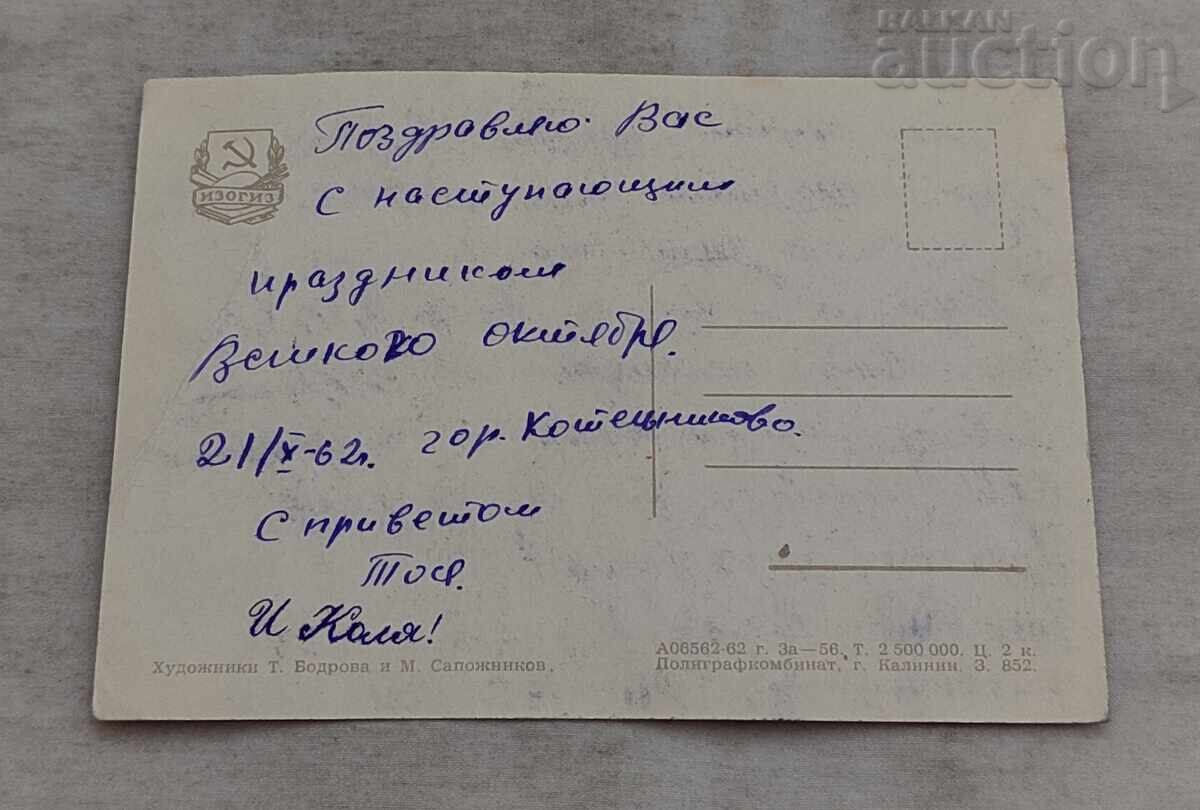 BALKAN
auction
ИЗОГИЗ
Поздравляю Вас
с наступающим
праздником
Великого октября.
21/X-62г. гор. Котельниково.
С приветом
Тося.
И Коля!
Художники Т. Бодрова и М. Сапожников.
А06562-62 г. За—56. Т. 2 500 000. Ц. 2 к.
Полиграфкомбинат, г. Калинин. З. 852.